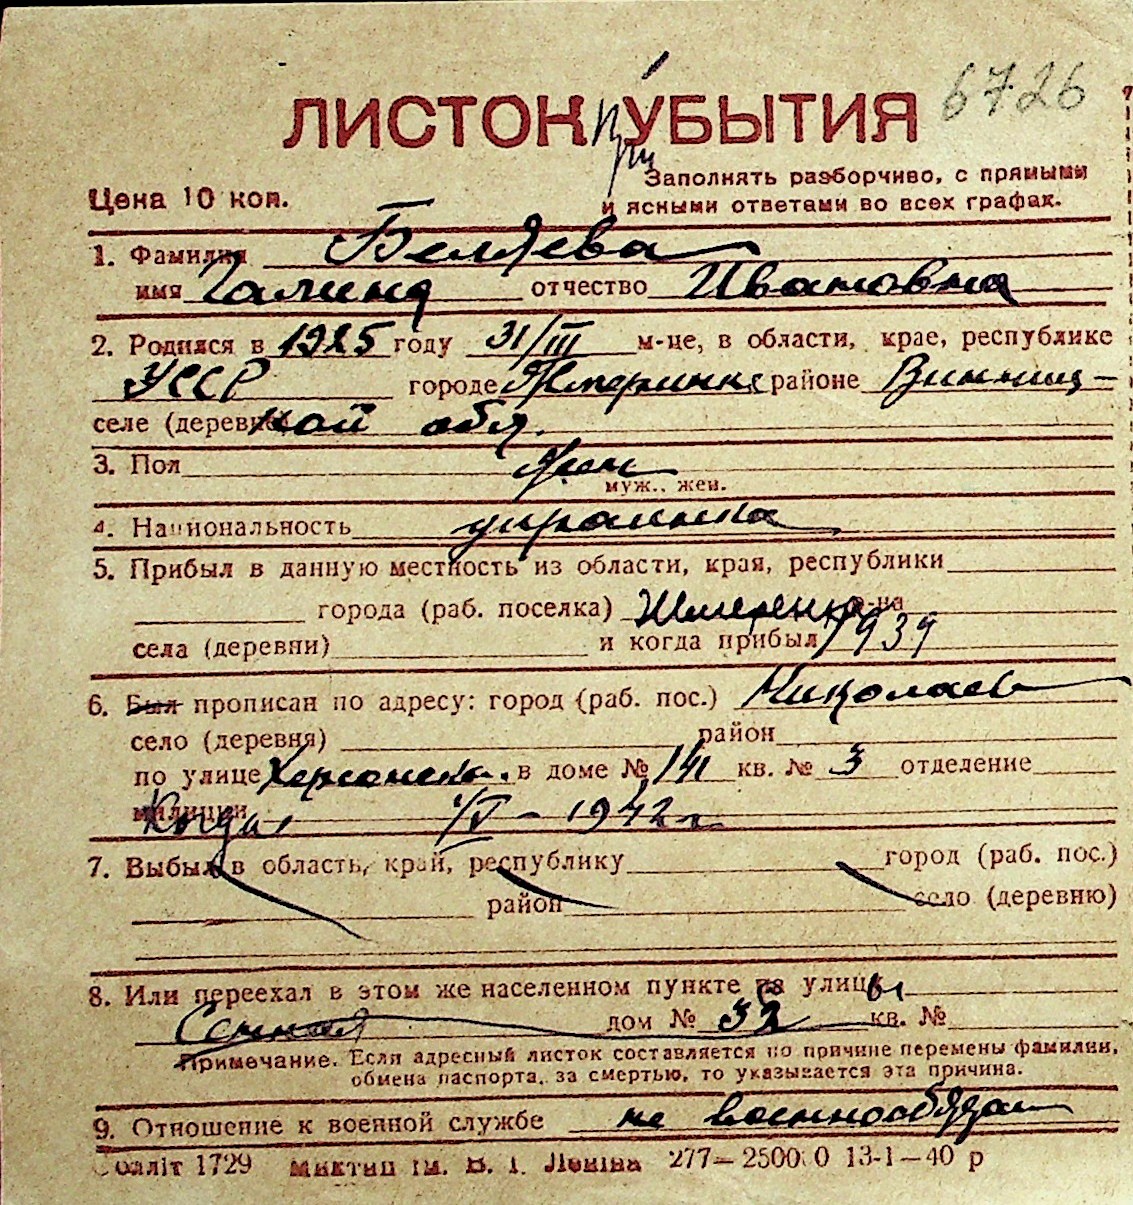 6726
ЛИСТОК При УБЫТИЯ
Цена 10 коп.
Заполнять разборчиво, с прямыми
и ясными ответами во всех графах.
1. Фамилия Беляева
имя Галина отчество Ивановна
2. Родился в 1925 году 31/III м-це, в области, крае, республике
УССР городе Жмеринка районе Винниц-
селе (деревне) кой обл.
3. Пол жен
муж., жен.
4. Национальность украинка
5. Прибыл в данную местность из области, края, республики
города (раб. поселка) Жмеренка р-на
села (деревни) и когда прибыл 1939
6. Был прописан по адресу: город (раб. пос.) Николаев
село (деревня) район
по улице Херсонская в доме № 141 кв. № 3 отделение
милиции Когда 1942 г
7. Выбыл в область, край, республику город (раб. пос.)
район село (деревню)
8. Или переехал в этом же населенном пункте на улицы
Сенная дом № 32 кв. №
Примечание. Если адресный листок составляется по причине перемены фамилии,
обмена паспорта, за смертью, то указывается эта причина.
9. Отношение к военной службе не военнообязан
Облліт 1729 Миктип ім. В. І. Леніна 277—2500 0 13-1—40 р